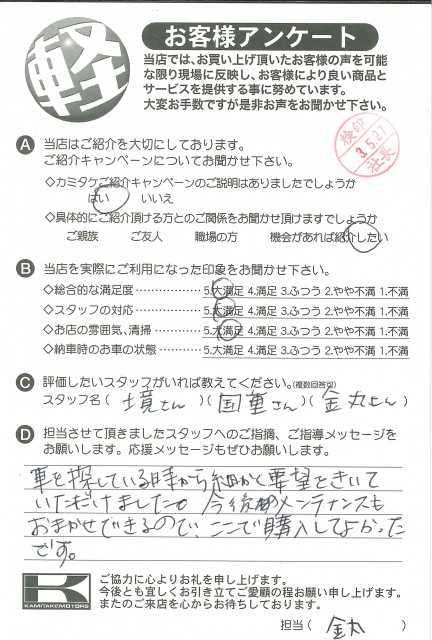 軽
お客様アンケート
当店では、お買い上げ頂いたお客様の声を可能
な限り現場に反映し、お客様により良い商品と
サービスを提供する事に努めています。
大変お手数ですが是非お声をお聞かせ下さい。
検印
3.5.27
社長
A 当店はご紹介を大切にしております。
ご紹介キャンペーンについてお聞かせ下さい。
◇カミタケご紹介キャンペーンのご説明はありましたでしょうか
はい いいえ
◇具体的にご紹介頂ける方とのご関係をお聞かせ頂けますでしょうか
ご親族 ご友人 職場の方 機会があれば紹介したい
B 当店を実際にご利用になった印象をお聞かせ下さい。
◇総合的な満足度 ・・・・・・・・・・・・ 5.大満足 4.満足 3.ふつう 2.やや不満 1.不満
◇スタッフの対応 ・・・・・・・・・・・・ 5.大満足 4.満足 3.ふつう 2.やや不満 1.不満
◇お店の雰囲気、清掃 ・・・・・・・・ 5.大満足 4.満足 3.ふつう 2.やや不満 1.不満
◇納車時のお車の状態 ・・・・・・・・ 5.大満足 4.満足 3.ふつう 2.やや不満 1.不満
C 評価したいスタッフがいれば教えてください。(複数回答可)
スタッフ名 ( 境さん )( 国重さん )( 金丸さん )
D 担当させて頂きましたスタッフへのご指摘、ご指導メッセージを
お願いします。応援メッセージもぜひお願いします。
車を探している時から細かく要望をきいて
いただけました。今後のメンテナンスも
おまかせできるので、ここで購入してよかった
です。
K
KAMITAKEMOTORS
ご協力に心よりお礼を申し上げます。
今後とも宜しくお引き立てご愛顧の程お願い申し上げます。
またのご来店を心からお待ちしております。
担当 ( 金丸 )